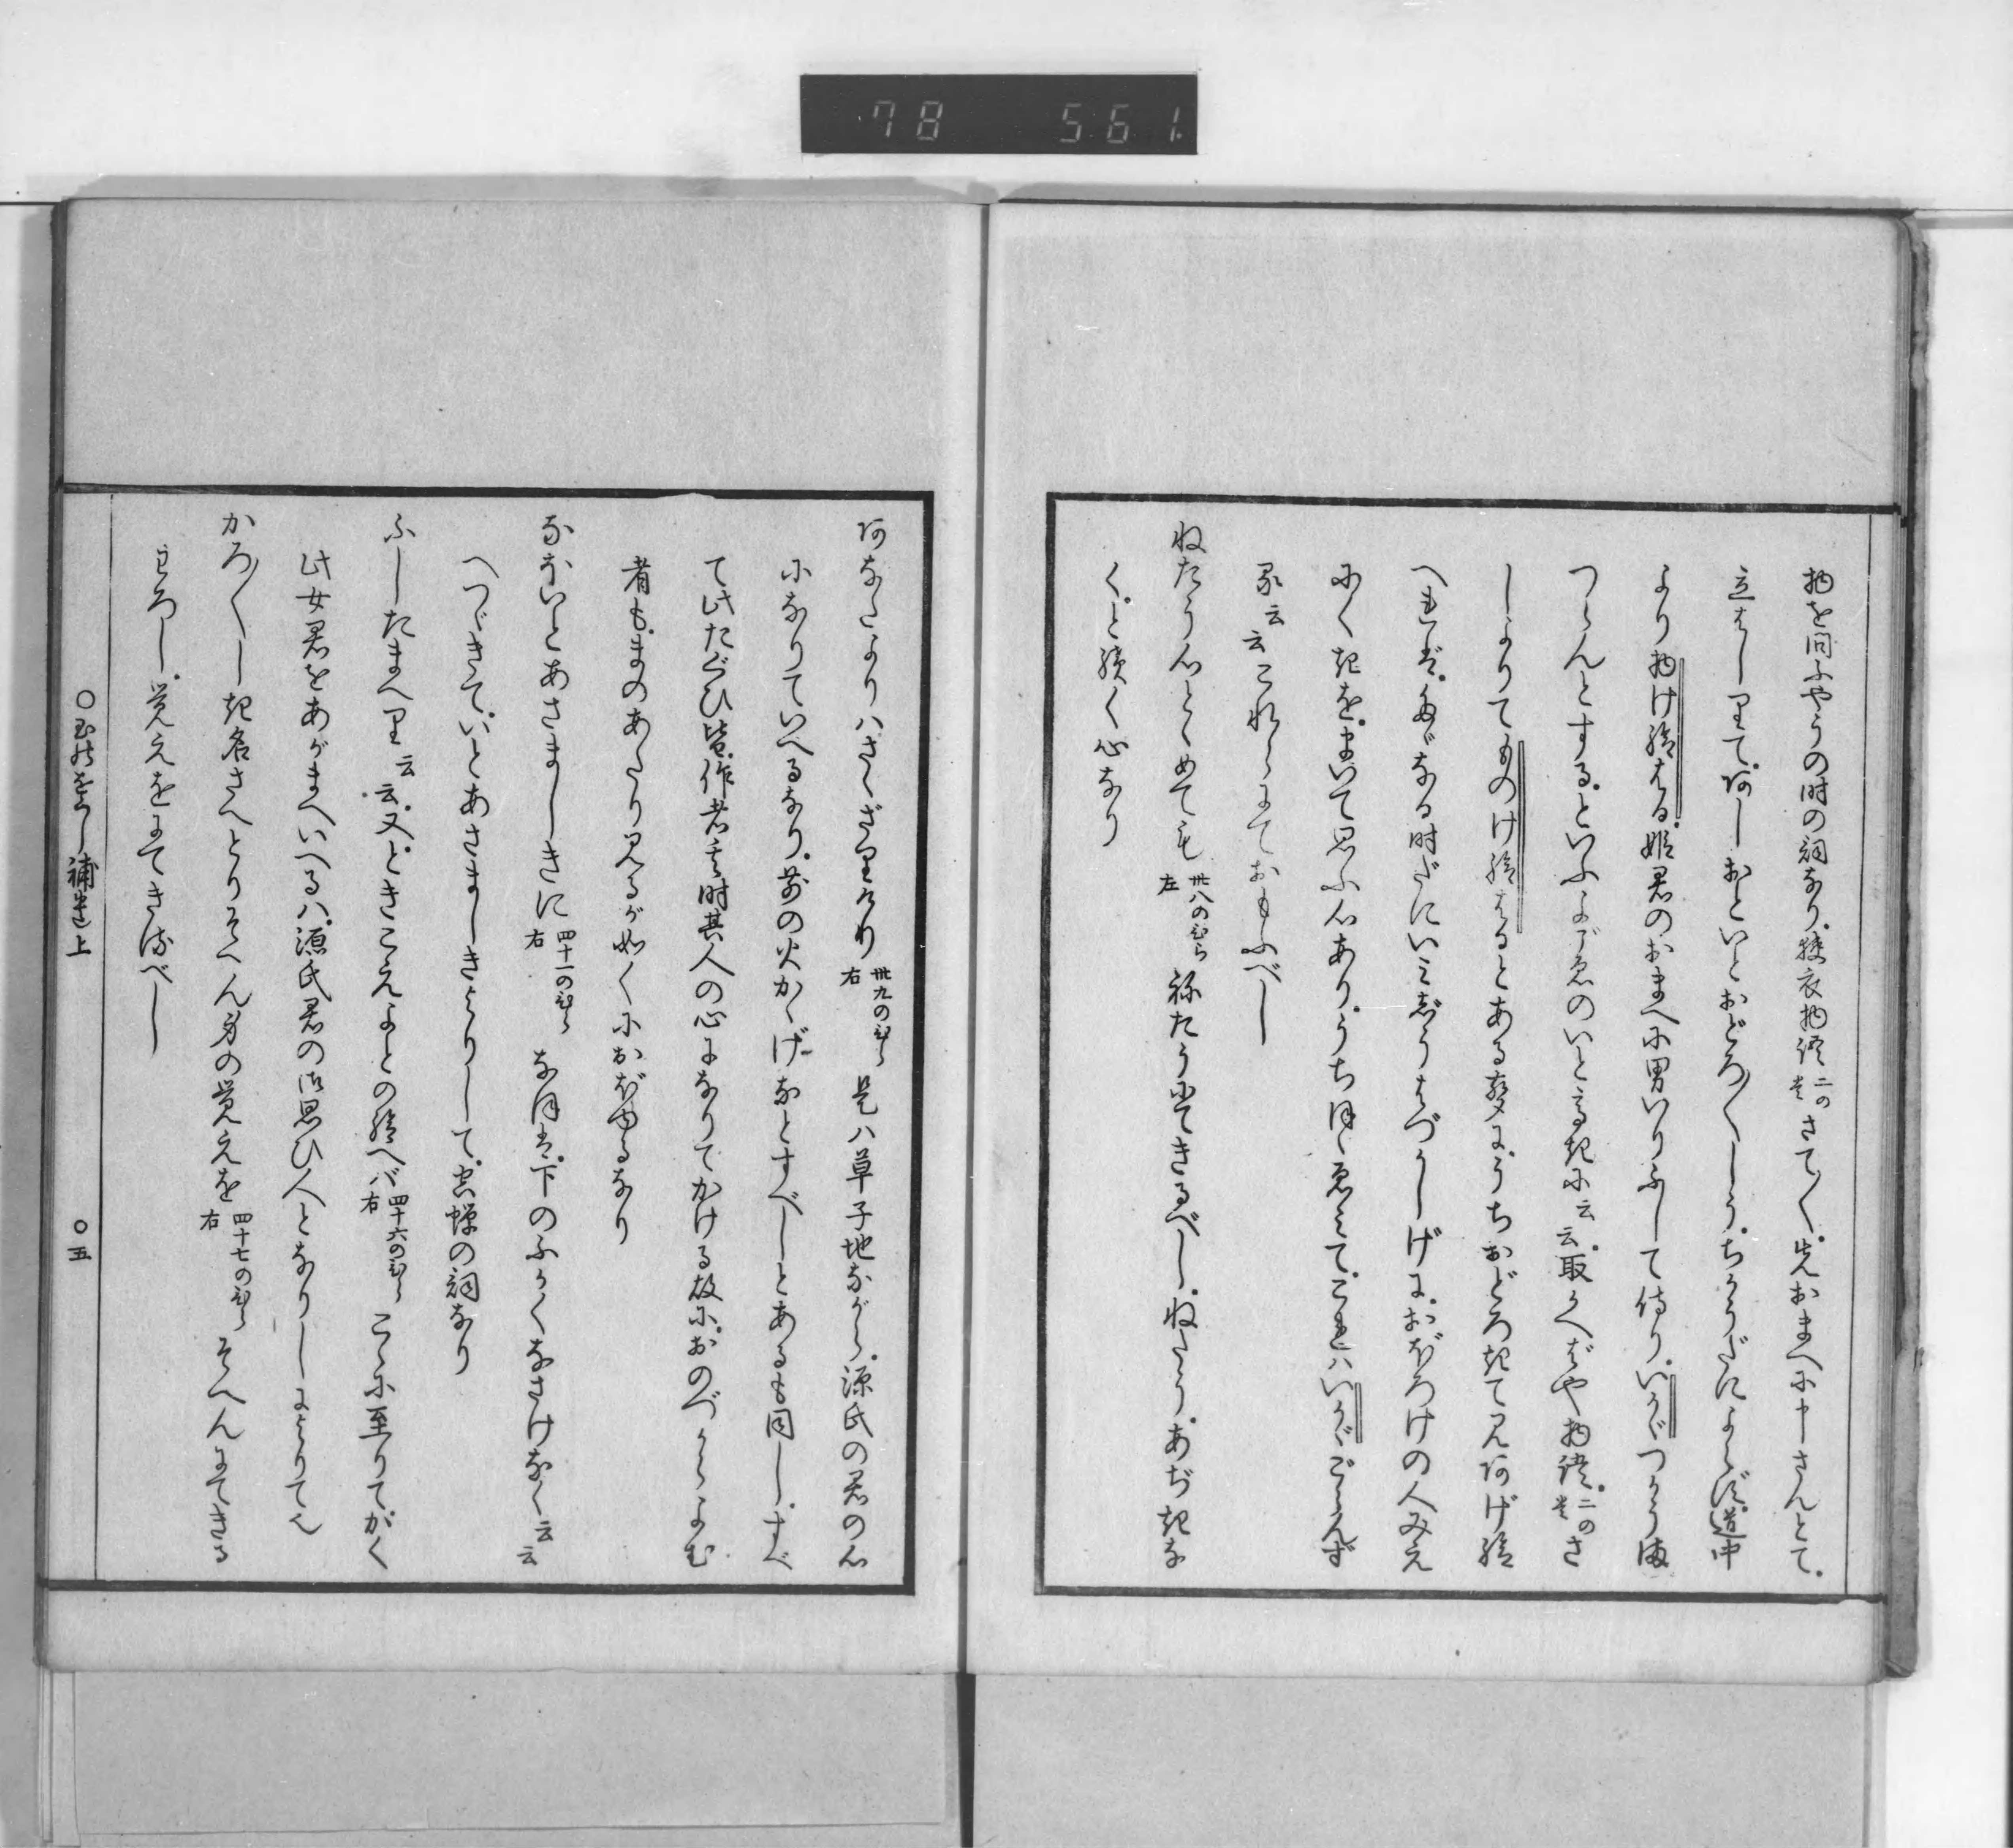 78 561.
物を問ふやうの時の詞なり。狭衣物語二の巻さて〳〵。先おまへに申さんとて。
立はしりて。阿しおといとおどろ〳〵しう。ちかうだによらず。道中
より物け給はる。姫君のおまへに男いりふして侍り。いかゞつかうま
つらんとする。といふよゞゑのいと高きに云云。取かへばや物語。二の巻さ
しよりてものけ給はるとある声に。うちおどろきて見阿げ給
へれば。なゞなる時だにいみじうはづかしげに。おぼろけの人みえ
にくきを。まいて思ふ心あり。うちほゝゑみて。これハいかゞごらんず
る云云これらにておもふべし
ねたう心とゞめても 卅八のひら左 祢たうにてきるべし。ねたう。あぢきな
く。と続く心なり
阿なたよりハさゝざりけり 卅九のひら右 是ハ草子地ながら。源氏の君の心
になりていへるなり。前の火かゝげなどすべしとあるも同し。すべ
て此たぐひ皆。作者其時其人の心になりてかける故に。おのづからよむ
者も。まのあたり見るが如くにおぼゆるなり
なほいとあさましきに 四十一のひら右 なほは。下のふかくなさけなく云云
へつゞきて。いとあさましきよりして。空蝉の詞なり
ふしたまへり云云。又ときこえよとの給へバ 四十六のひら右 こゝに至りてかく
此女君をあがまへいへるハ。源氏君の御思ひ人となりしによりて也
かろ〴〵しき名さへとりそへん身の覚えを 四十七のひら右 そへんにてきる
はわろし。覚えをにてきるべし
〇玉のをぐし補遺上 〇五